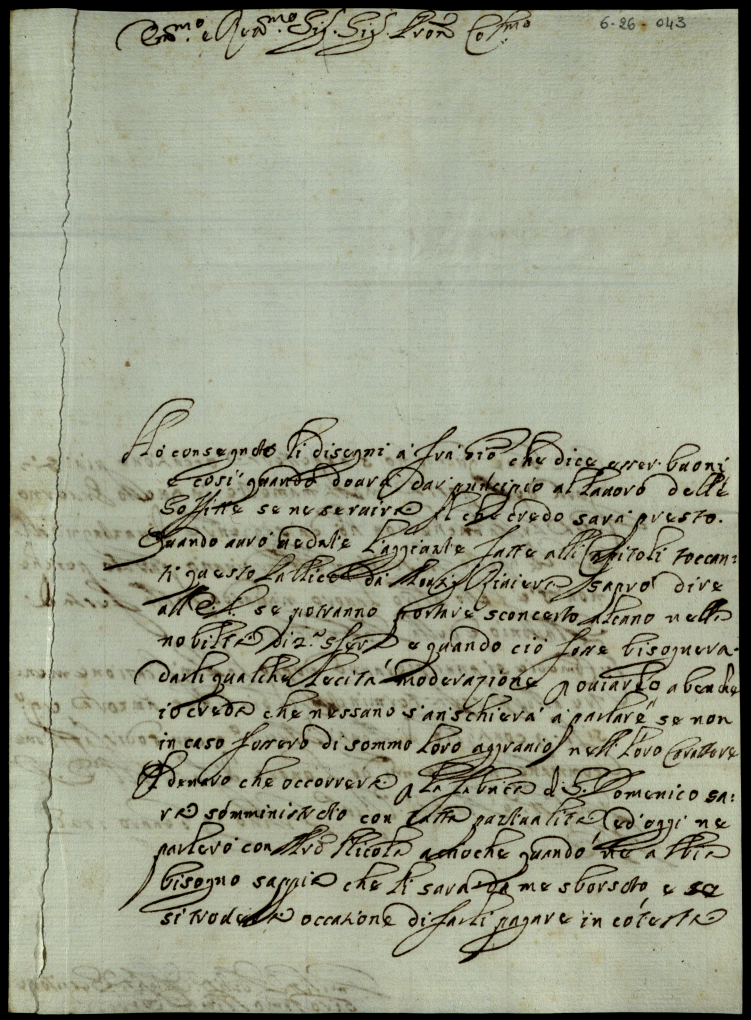 6-26-043
Em.mo e Rev.mo Sig. Sig. Pron Col.mo
Hò consegnato li disegni à frà Pio che dice esser buoni
e così quando dovrà dar principio al lavoro delle
Soffitte se ne servirà il che credo sarà presto.
Quando avrò vedute l'aggiunte fatte alli Capitoli toccan-
ti questo da Mons. Riviera saprò dire
all' se potranno portare sconcerto alcuno nella
nobiltà di 2.a sfera e quando ciò fosse bisognerà
darli qualche lecita moderazione ovviarlo a benche
io creda che nessuno s'arischierà à parlare se non
in caso fossero di sommo loro aggravio nell' loro Carattere
Il denaro che occorrerà la fabrica di S. Domenico sa-
rà somministrato con tutta puntualità ed'oggi ne
parlerò con Nicola acciochè quando ne abbia
bisogno sappia che li sarà da me sborsato e se
si troverà occazione di farli pagare in cotesta